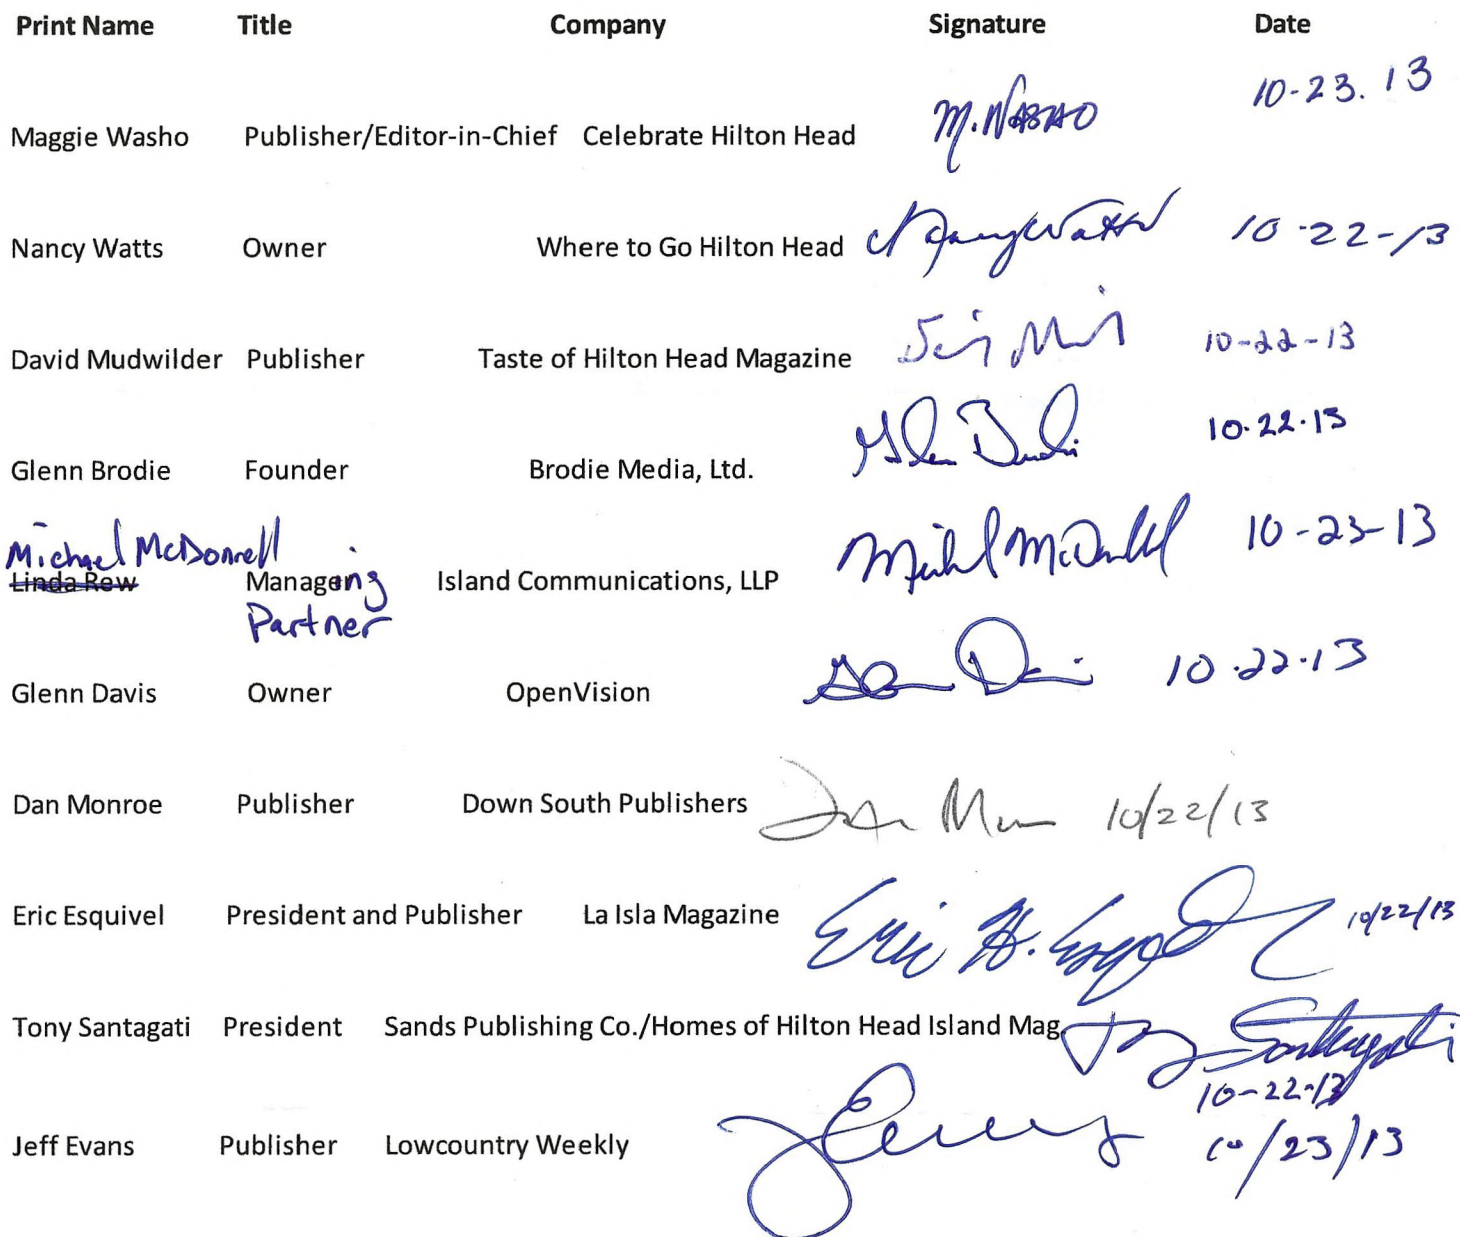 Print Name Title Company Signature Date
Maggie Washo Publisher/Editor-in-Chief Celebrate Hilton Head M. Washo 10-23.13
Nancy Watts Owner Where to Go Hilton Head Nancy Watts 10-22-13
David Mudwilder Publisher Taste of Hilton Head Magazine 10-22-13
Glenn Brodie Founder Brodie Media, Ltd. 10.22.13
Michael McDonnell
Linda Rew Managering Island Communications, LLP Michael McDonnell 10-23-13
Partner
Glenn Davis Owner OpenVision 10.22.13
Dan Monroe Publisher Down South Publishers 10/22/13
Eric Esquivel President and Publisher La Isla Magazine Eric H. Esquivel 10/22/13
Tony Santagati President Sands Publishing Co./Homes of Hilton Head Island Mag Tony Santagati
10-22-13
Jeff Evans Publisher Lowcountry Weekly 10/23/13